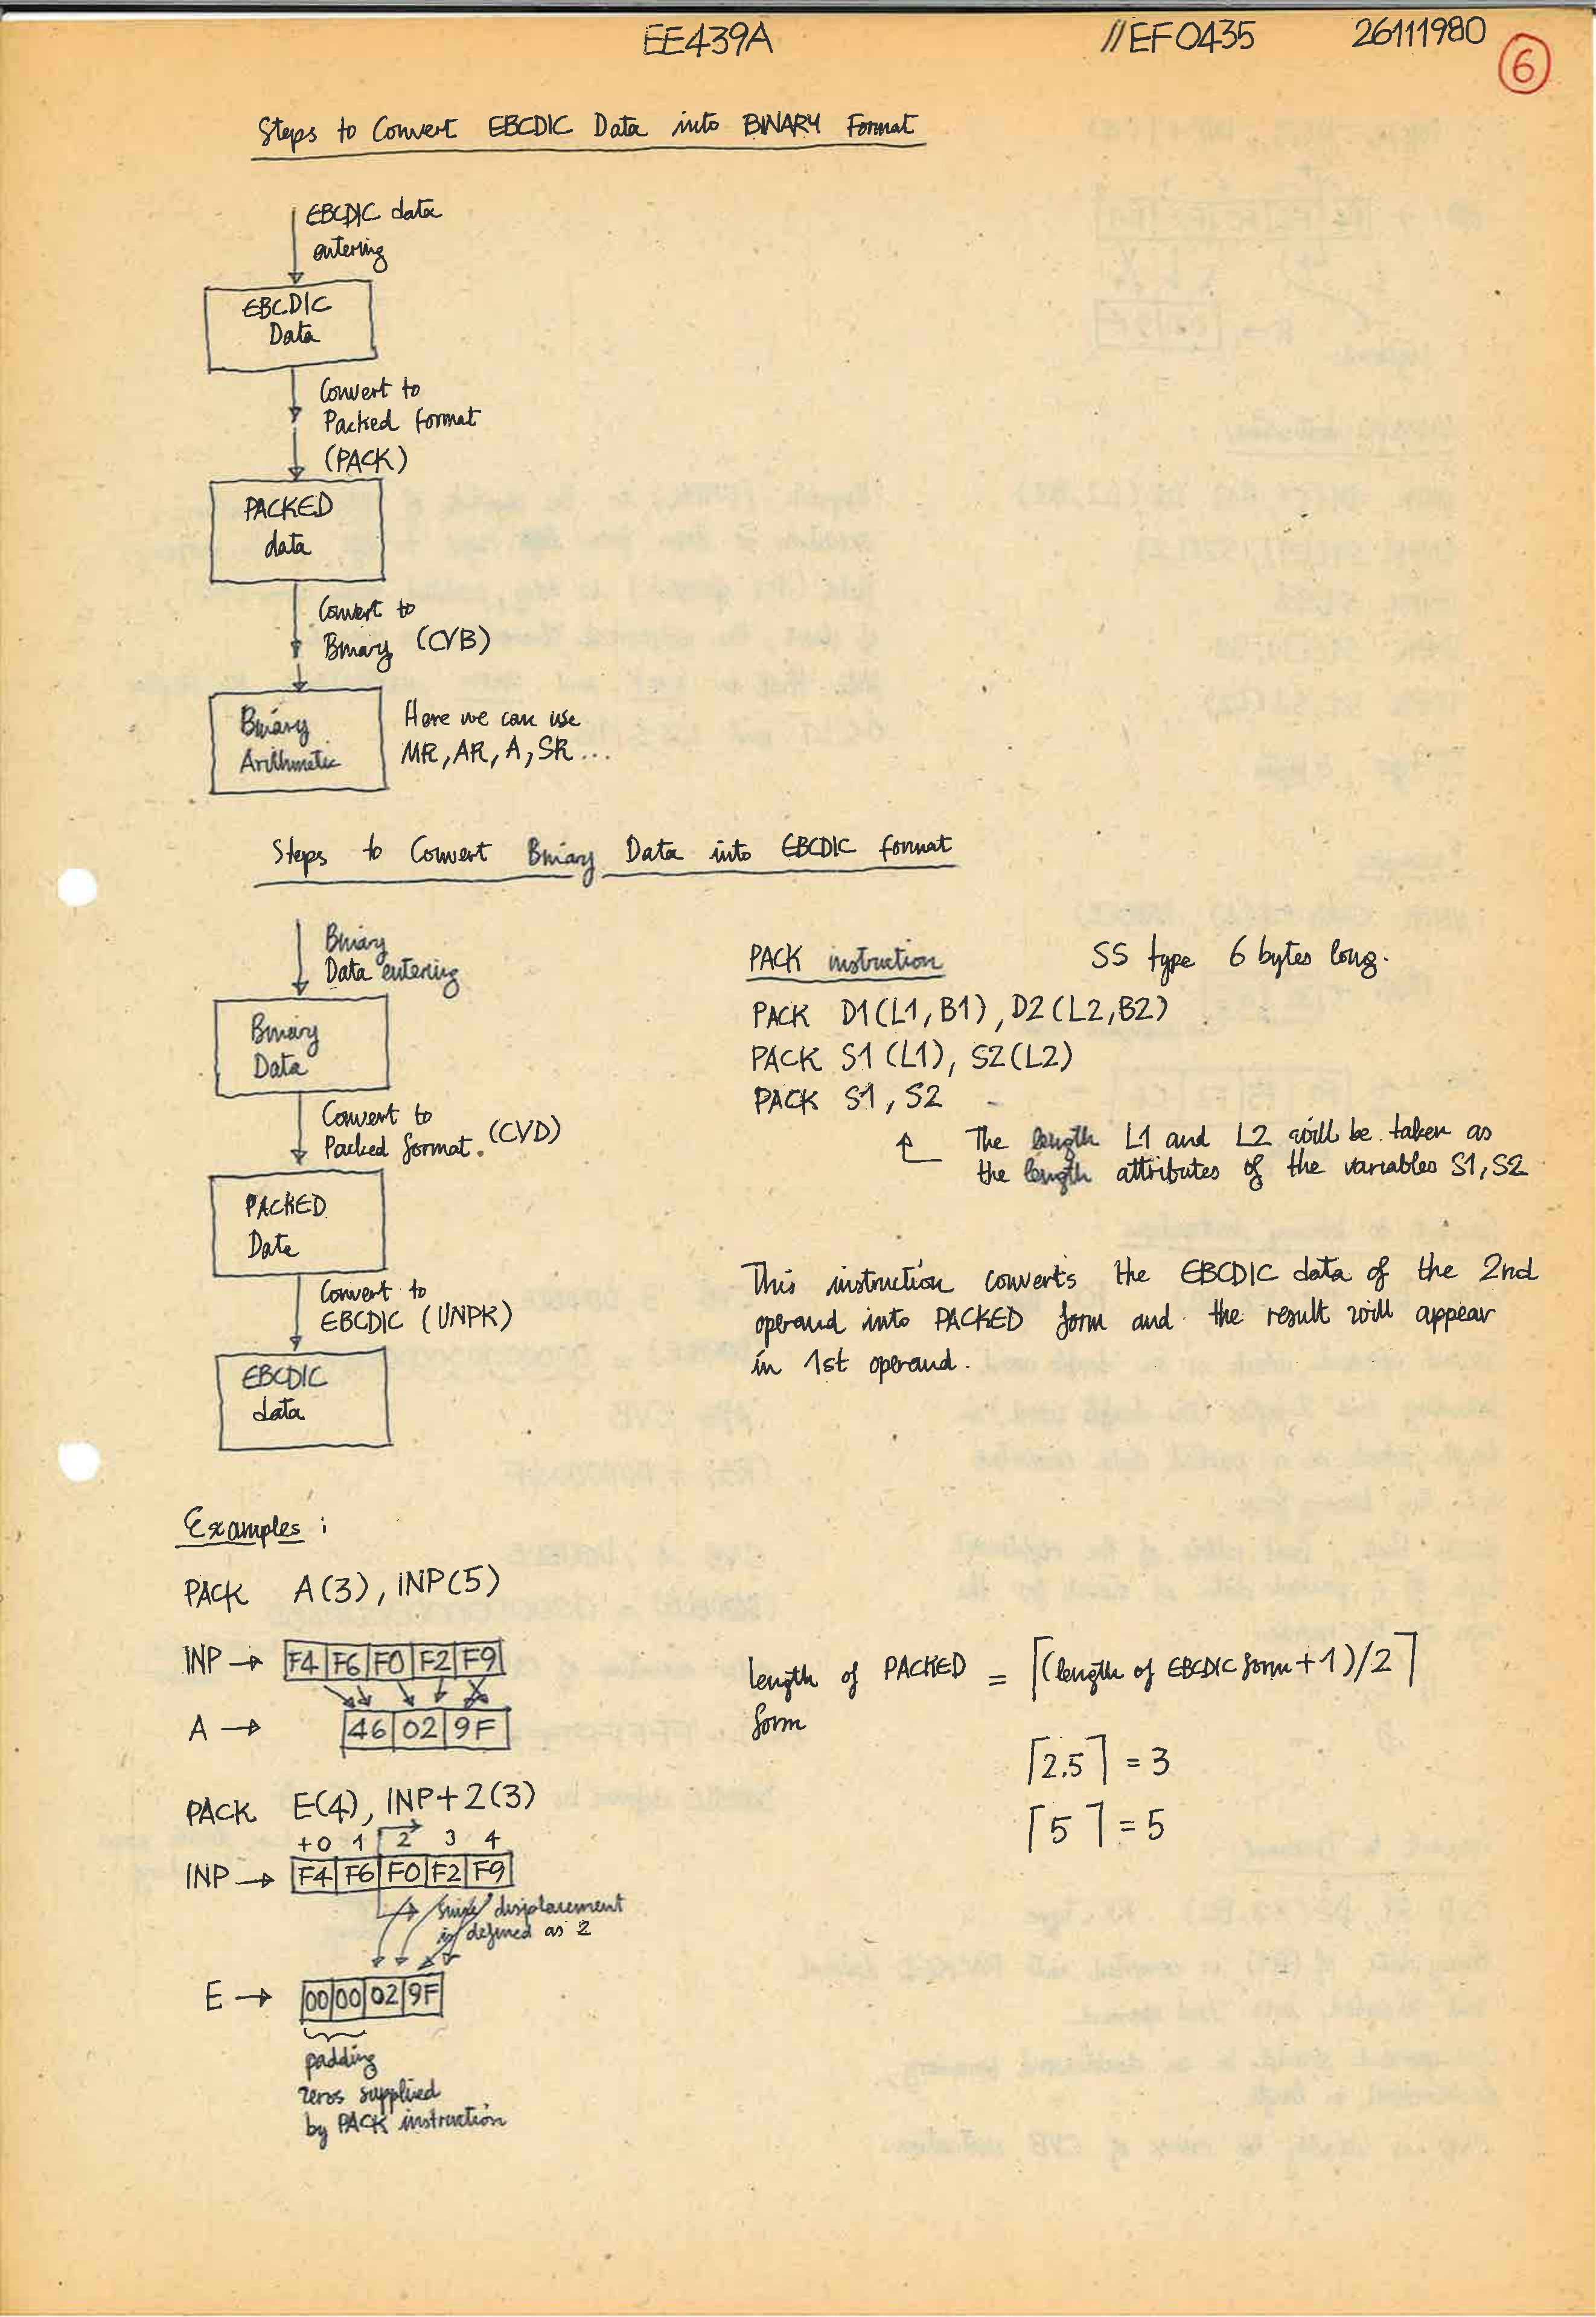 EE439A //EF0435 26111980
6
Steps to Convert EBCDIC Data into BINARY Format
EBCDIC data
entering
EBCDIC
Data
Convert to
Packed format
(PACK)
PACKED
data
Convert to
Binary (CVB)
Binary
Arithmetic
Here we can use
MR, AR, A, SR ...
Steps to Convert Binary Data into EBCDIC format
Binary
Data entering
Binary
Data
Convert to
Packed format. (CVD)
PACKED
Data
Convert to
EBCDIC (UNPK)
EBCDIC
data
PACK instruction SS type 6 bytes long.
PACK D1(L1,B1), D2(L2,B2)
PACK S1(L1), S2(L2)
PACK S1, S2
The length L1 and L2 will be taken as
the length attributes of the variables S1, S2
This instruction converts the EBCDIC data of the 2nd
operand into PACKED form and the result will appear
in 1st operand.
Examples :
PACK A(3), INP(5)
INP → F4 F6 F0 F2 F9
A → 46 02 9F
length of PACKED = ⌈(length of EBCDIC form + 1)/2⌉
form
⌈2.5⌉ = 3
⌈5⌉ = 5
PACK E(4), INP+2(3)
+0 1 2 3 4
INP → F4 F6 F0 F2 F9
since displacement
is defined as 2
E → 00 00 02 9F
padding
zeros supplied
by PACK instruction